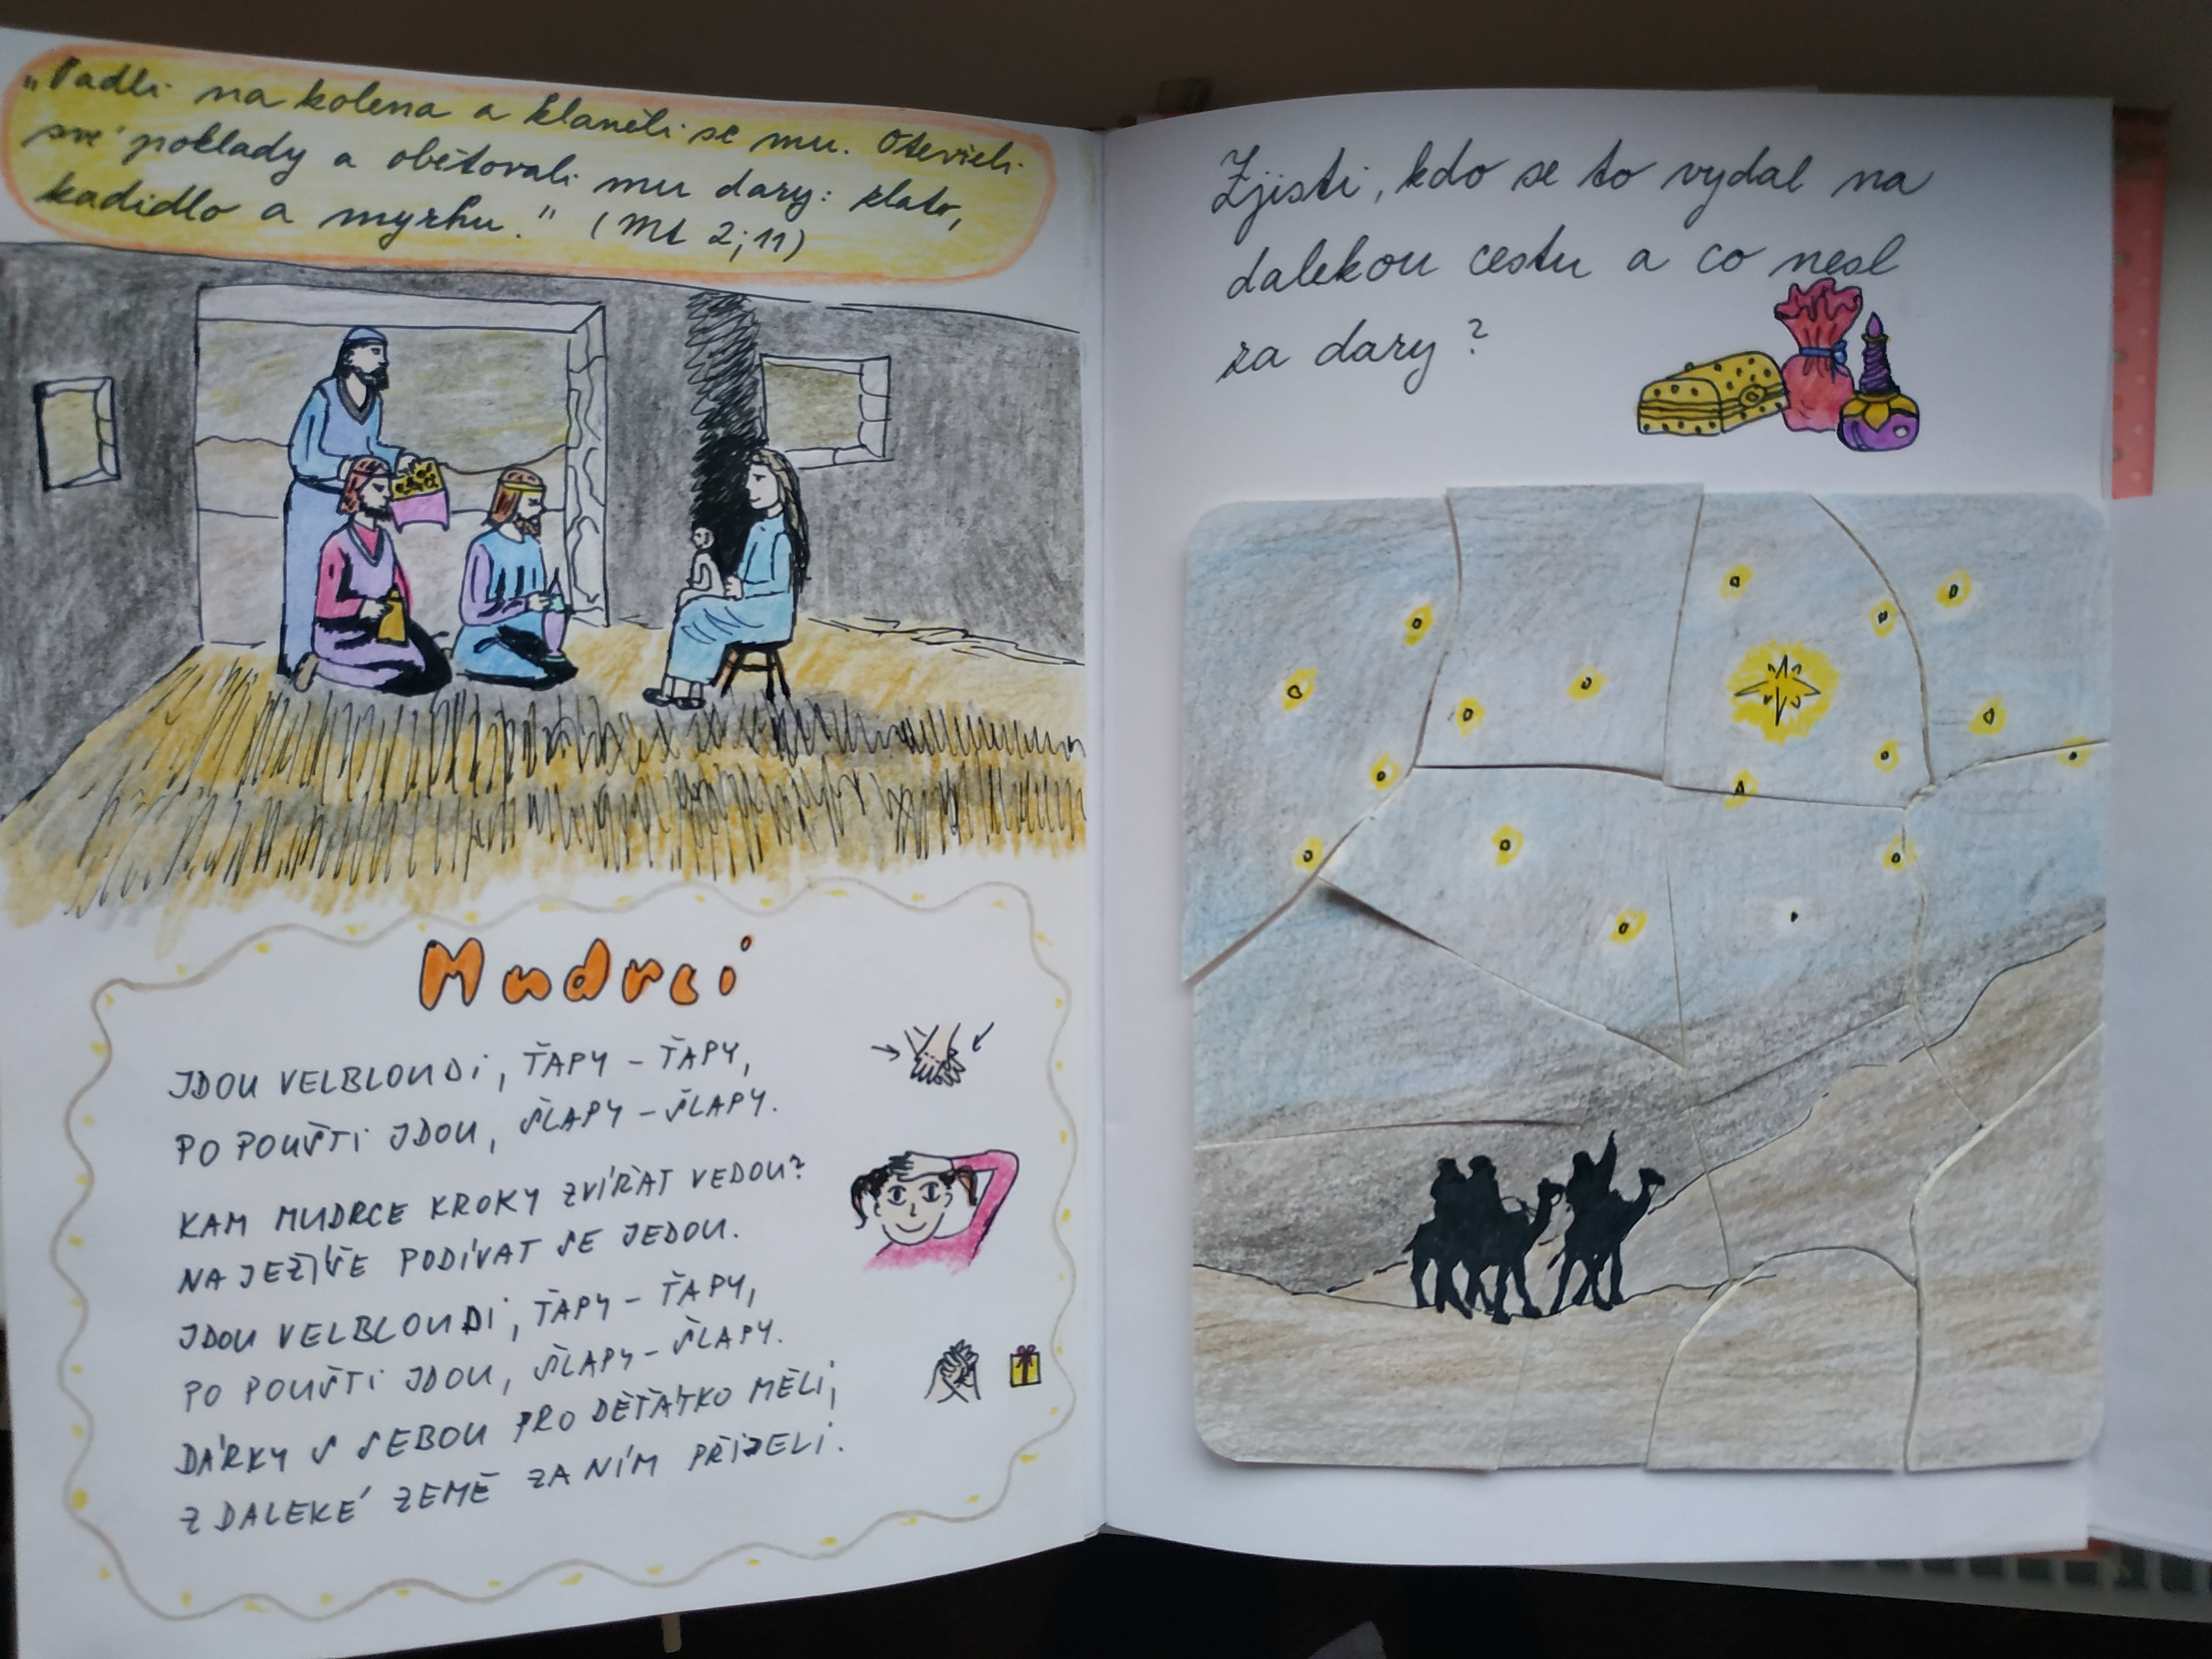 „Padli na kolena a klaněli se mu. Otevřeli
své poklady a obětovali mu dary: zlato,
kadidlo a myrhu." (Mt 2;11)
Mudrci
JDOU VELBLOUDI, ŤAPY - ŤAPY,
PO POUŠTI JDOU, ŠLAPY - ŠLAPY.
KAM MUDRCE KROKY ZVÍŘAT VEDOU?
NA JEŽÍŠE PODÍVAT SE JEDOU.
JDOU VELBLOUDI, ŤAPY - ŤAPY,
PO POUŠTI JDOU, ŠLAPY - ŠLAPY.
DÁRKY S SEBOU PRO DĚŤÁTKO MĚLI,
Z DALEKÉ ZEMĚ ZA NÍM PŘIJELI.
Zjisti, kdo se to vydal na
dalekou cestu a co nesl
za dary?